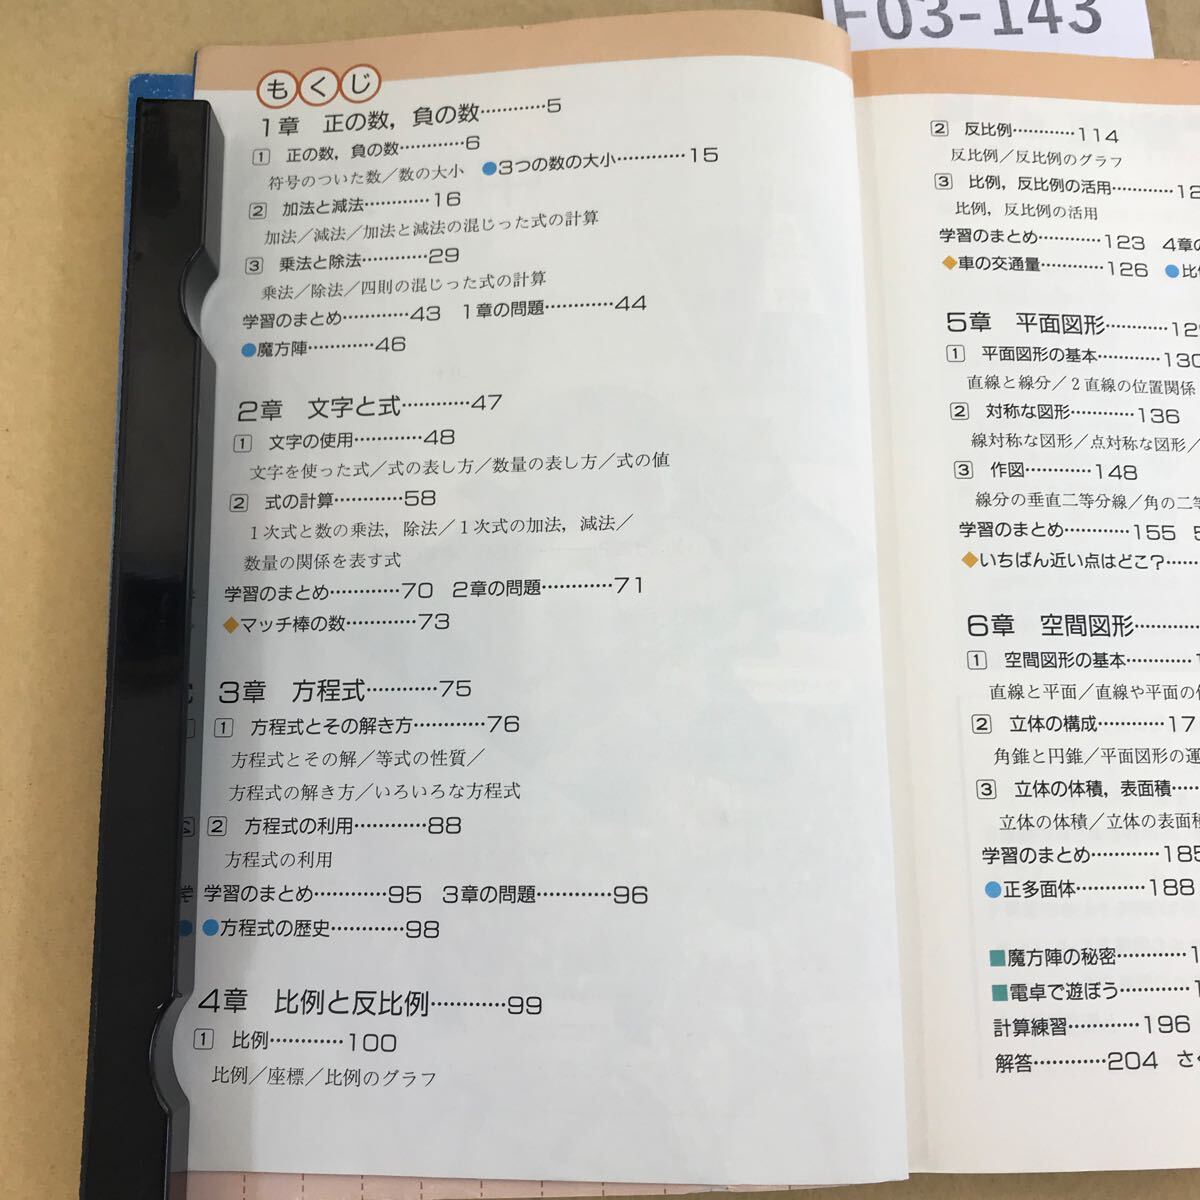 F03-143
もくじ
1章 正の数，負の数…………5
1 正の数，負の数…………6
符号のついた数／数の大小 ●3つの数の大小…………15
2 加法と減法…………16
加法／減法／加法と減法の混じった式の計算
3 乗法と除法…………29
乗法／除法／四則の混じった式の計算
学習のまとめ…………43 1章の問題…………44
●魔方陣…………46
2章 文字と式…………47
1 文字の使用…………48
文字を使った式／式の表し方／数量の表し方／式の値
2 式の計算…………58
1次式と数の乗法，除法／1次式の加法，減法／
数量の関係を表す式
学習のまとめ…………70 2章の問題…………71
◆マッチ棒の数…………73
3章 方程式…………75
1 方程式とその解き方…………76
方程式とその解／等式の性質／
方程式の解き方／いろいろな方程式
2 方程式の利用…………88
方程式の利用
学習のまとめ…………95 3章の問題…………96
●方程式の歴史…………98
4章 比例と反比例…………99
1 比例…………100
比例／座標／比例のグラフ
2 反比例…………114
反比例／反比例のグラフ
3 比例，反比例の活用…………12
比例，反比例の活用
学習のまとめ…………123 4章の
◆車の交通量…………126 ●比
5章 平面図形…………12
1 平面図形の基本…………130
直線と線分／2直線の位置関係
2 対称な図形…………136
線対称な図形／点対称な図形／
3 作図…………148
線分の垂直二等分線／角の二等
学習のまとめ…………155 5
◆いちばん近い点はどこ？……
6章 空間図形…………
1 空間図形の基本…………1
直線と平面／直線や平面の
2 立体の構成…………17
角錐と円錐／平面図形の運
3 立体の体積，表面積……
立体の体積／立体の表面積
学習のまとめ…………185
●正多面体…………188
■魔方陣の秘密…………1
■電卓で遊ぼう…………1
計算練習…………196
解答…………204 さく